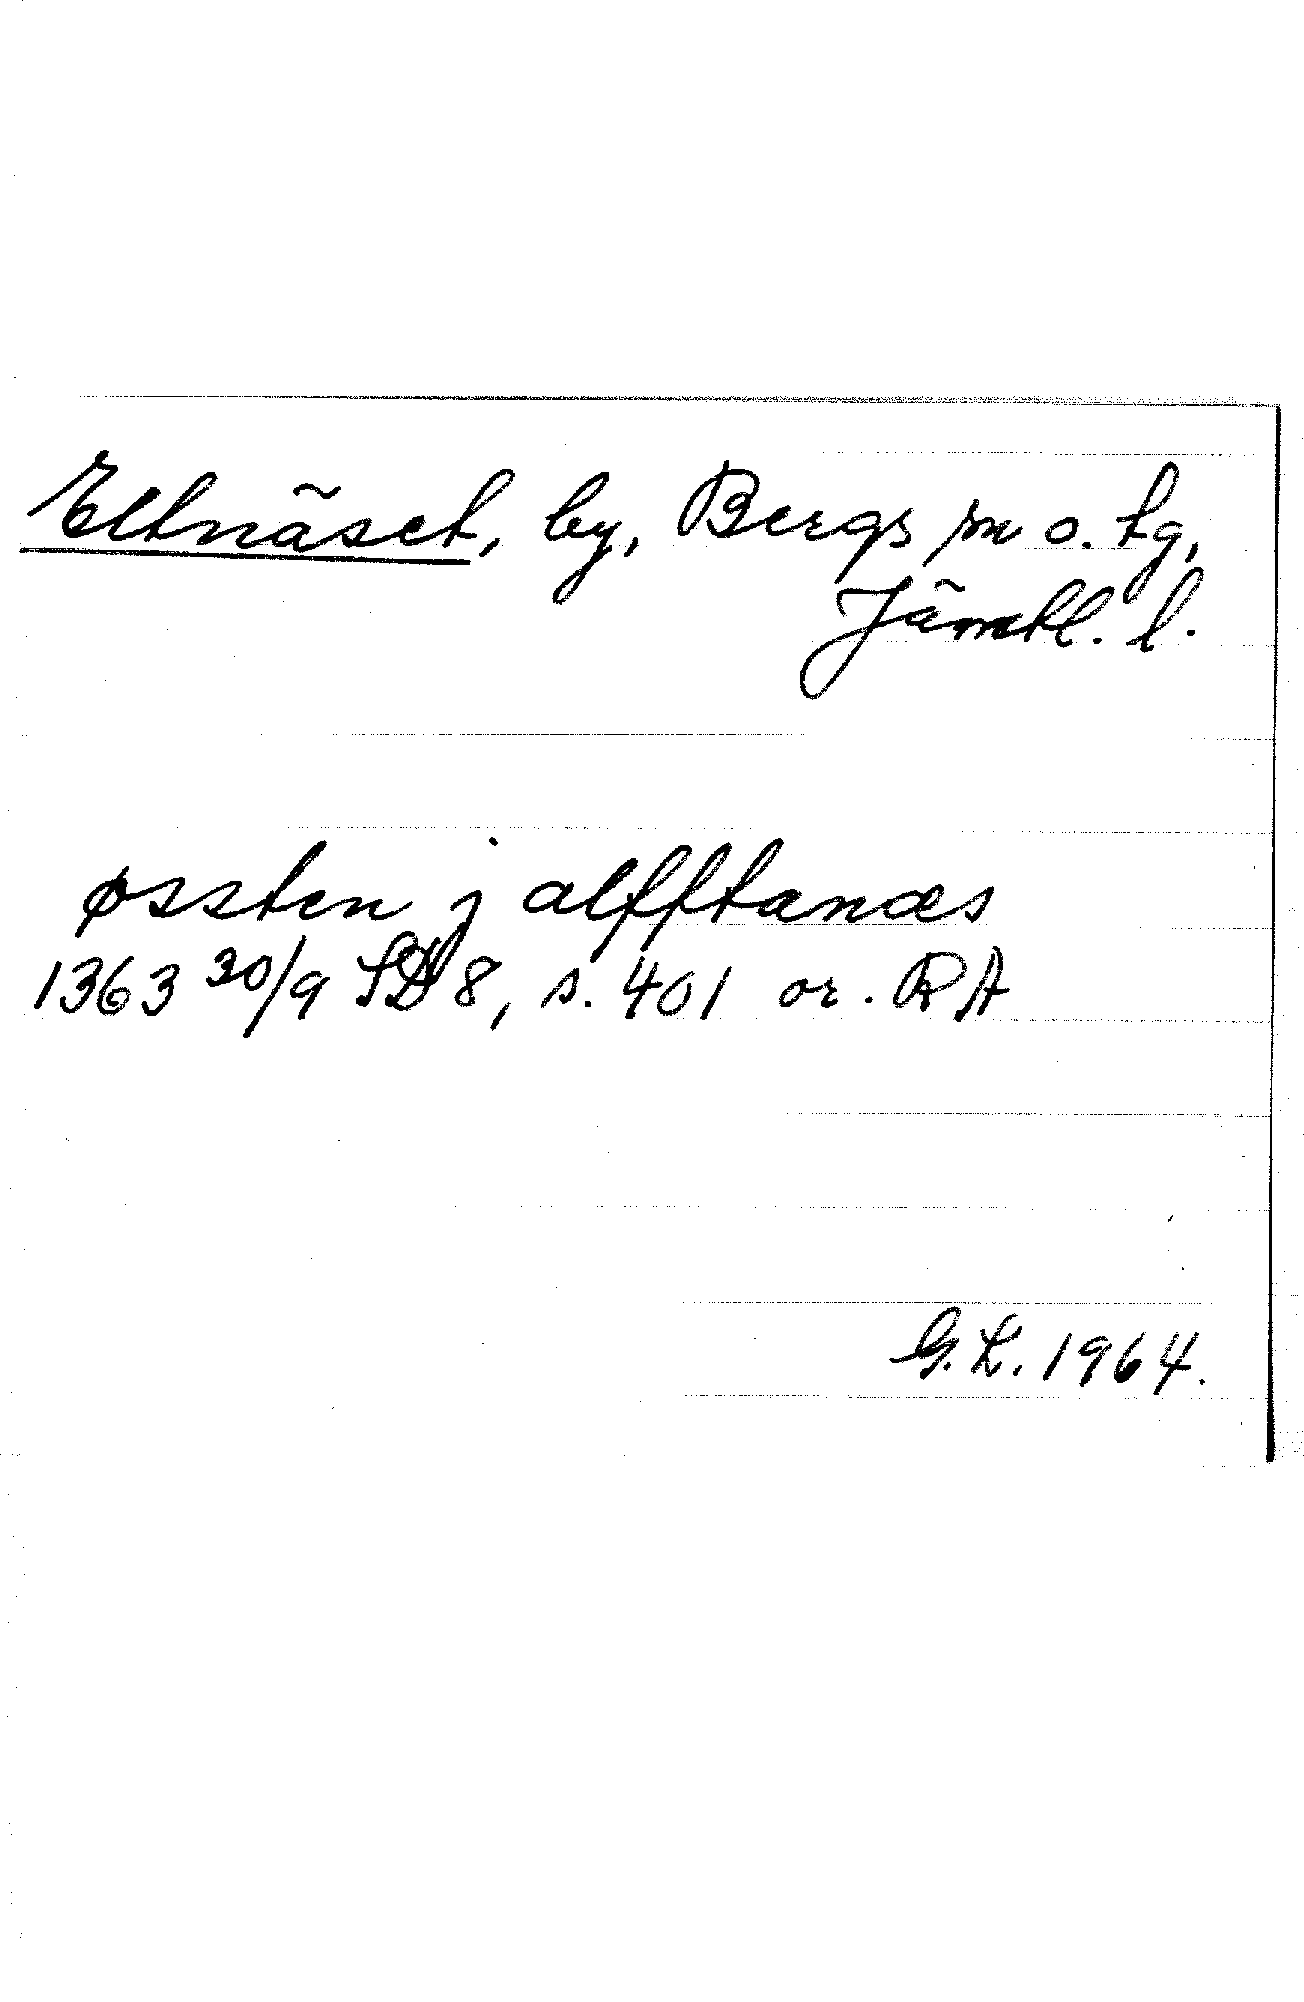 Eltnäset, by, Bergs sn o. tg,
Jämtl. l.
øssten j alfftanæs
1363 30/9 SD 8, s. 401 or. RA
G.L. 1964.